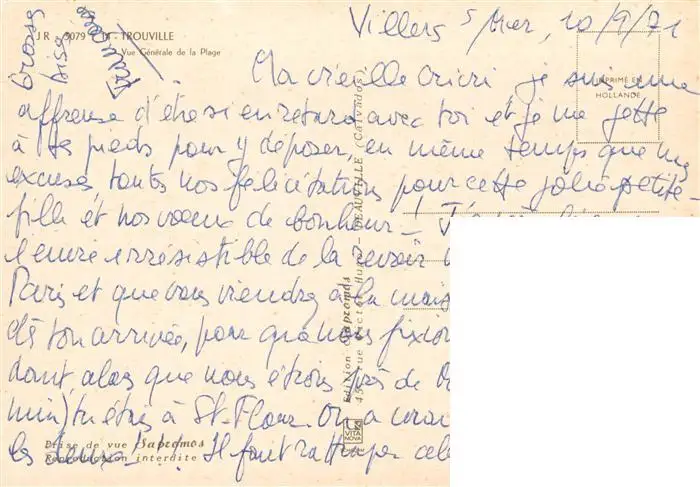 Villers s/Mer, 10/9/71
J R 5079 D - TROUVILLE
Vue Générale de la Plage
IMPRIMÉ EN
HOLLANDE
Grosse
bise
Ma vieille Cricri je suis une
affreuse d'être si en retard avec toi et je me jette
à tes pieds pour y déposer, en même temps que mes
excuses toutes nos félicitations pour cette jolie petite-
fille et nos vœux de bonheur !
l'envie irrésistible de la revoir
Paris et que vous viendrez à la mais
dès ton arrivée, pour que nous fixio
dant, alors que nous étions près de
min) tu étais à St-Flour. On a
les deux ! Il faut rattraper cel
Edition Sapromos
45, rue Victor Hugo - DEAUVILLE (Calvados)
Prise de vue Sapromos
Reproduction interdite